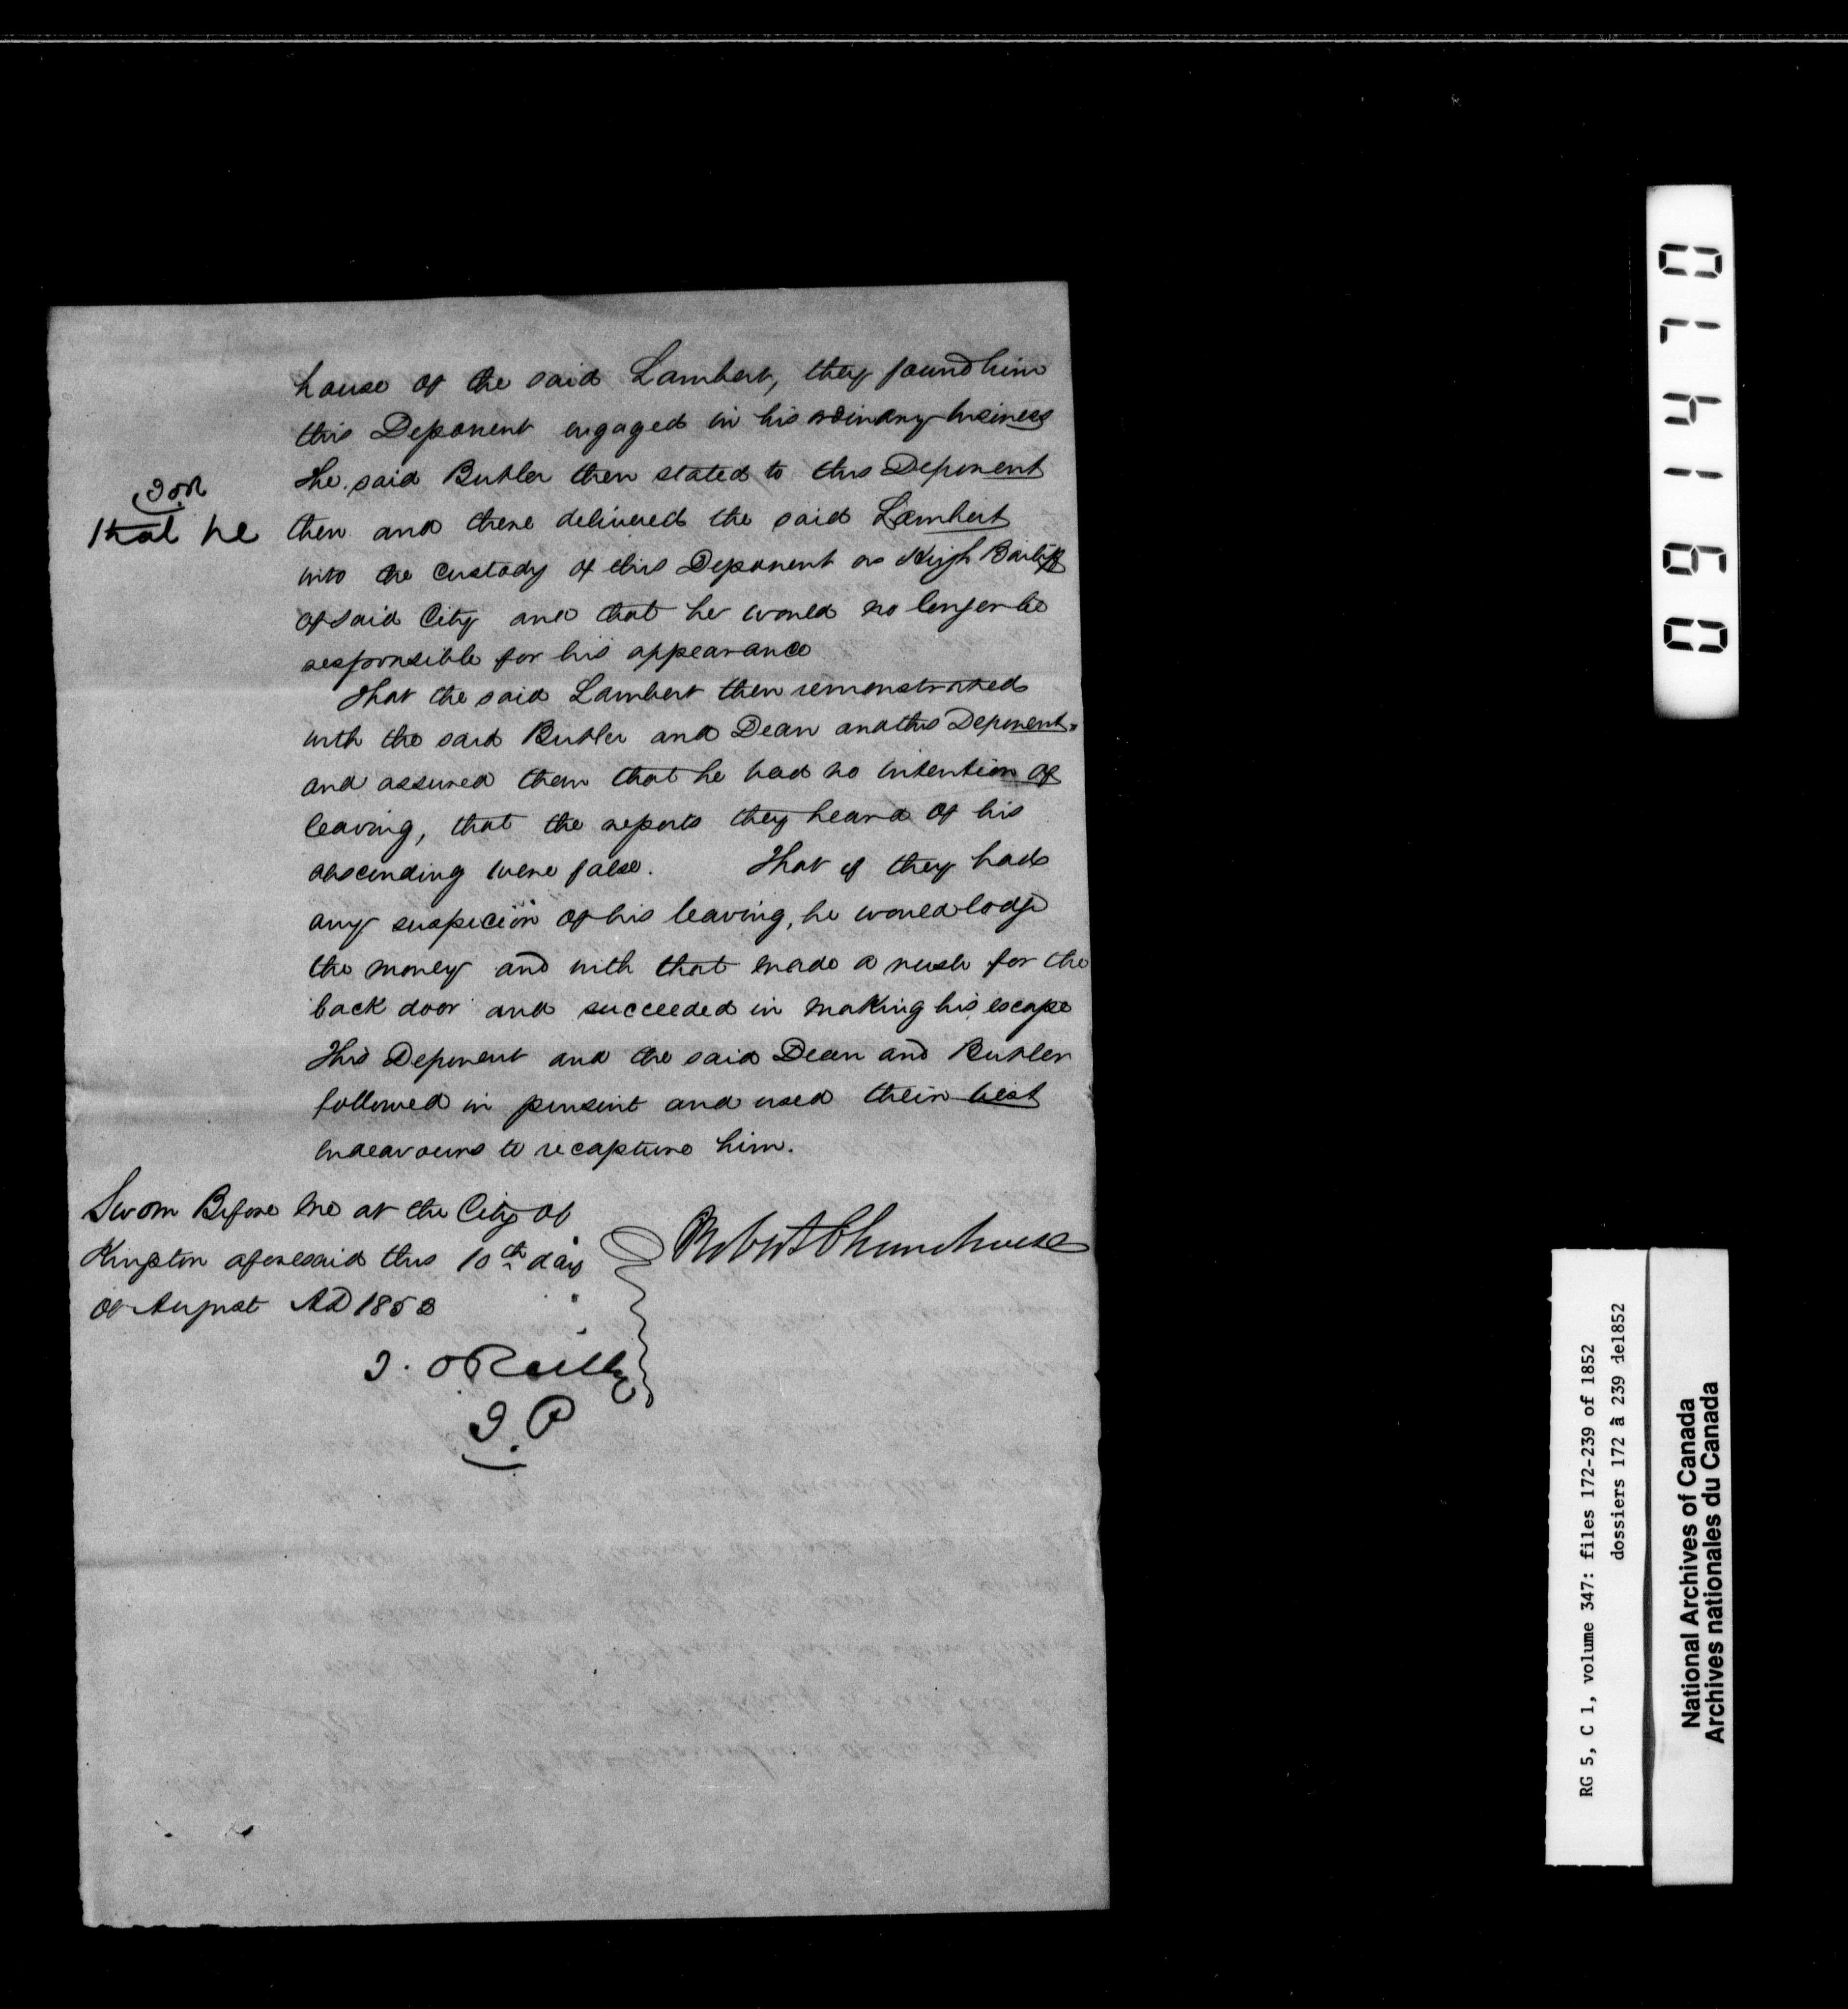 house of the said Lambert, they found him
this Deponent engaged in his ordinary business
The said Butler then stated to this Deponent
that he
then and there delivered the said Lambert
into the custody of this Deponent as High Bailiff
of said City and that he would no longer be
responsible for his appearance
That the said Lambert then remonstrated
with the said Butler and Dean and this Deponent
and assured them that he had no intention of
leaving, that the reports they heard of his
absconding were false. That if they had
any suspicion of his leaving, he would lodge
the money and with that made a rush for the
back door and succeeded in making his escape
This Deponent and the said Dean and Butler
followed in pursuit and used their best
endeavours to recapture him.
Sworn Before me at the City of
Kingston aforesaid this 10th day
of August AD 1852
Robert
J. OReilly
J. P
091470
RG 5, C 1, volume 347: files 172-239 of 1852
dossiers 172 à 239 de1852
National Archives of Canada
Archives nationales du Canada